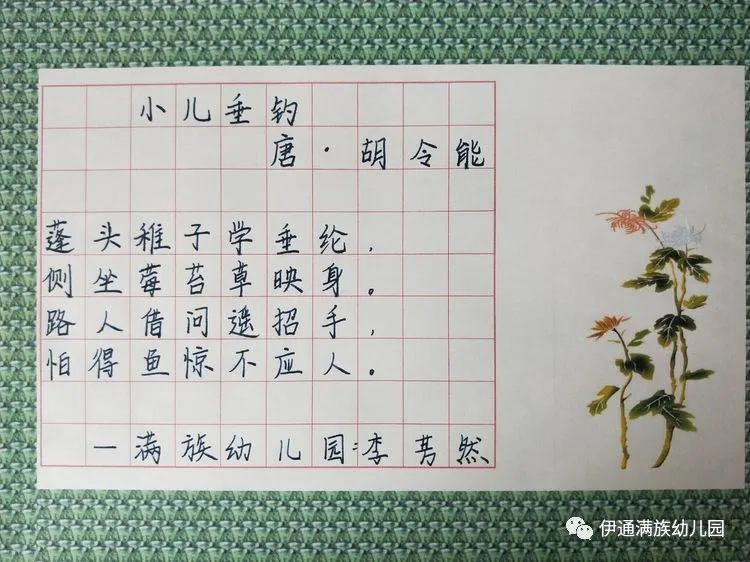 小儿垂钓
唐·胡令能
蓬头稚子学垂纶,
侧坐莓苔草映身。
路人借问遥招手,
怕得鱼惊不应人。
一满族幼儿园:李然
伊通满族幼儿园